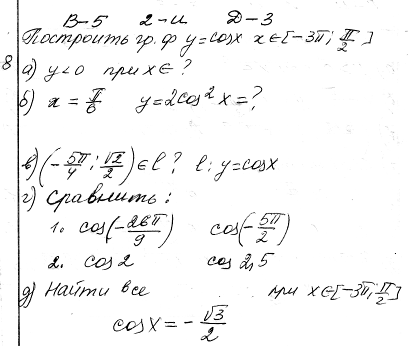 В-5 2-и Д-3
Построить гр. ф y=cosx x∈[-3π; π/2]
8
а) y<0 при x∈?
б) x = π/6 y=2cos²x=?
в) (-5π/4; √2/2)∈l? l: y=cosx
г) Сравнить:
1. cos(-26π/9) cos(-5π/2)
2. cos 2 cos 2,5
д) Найти все при x∈[-3π; π/2]
cosx = -√3/2